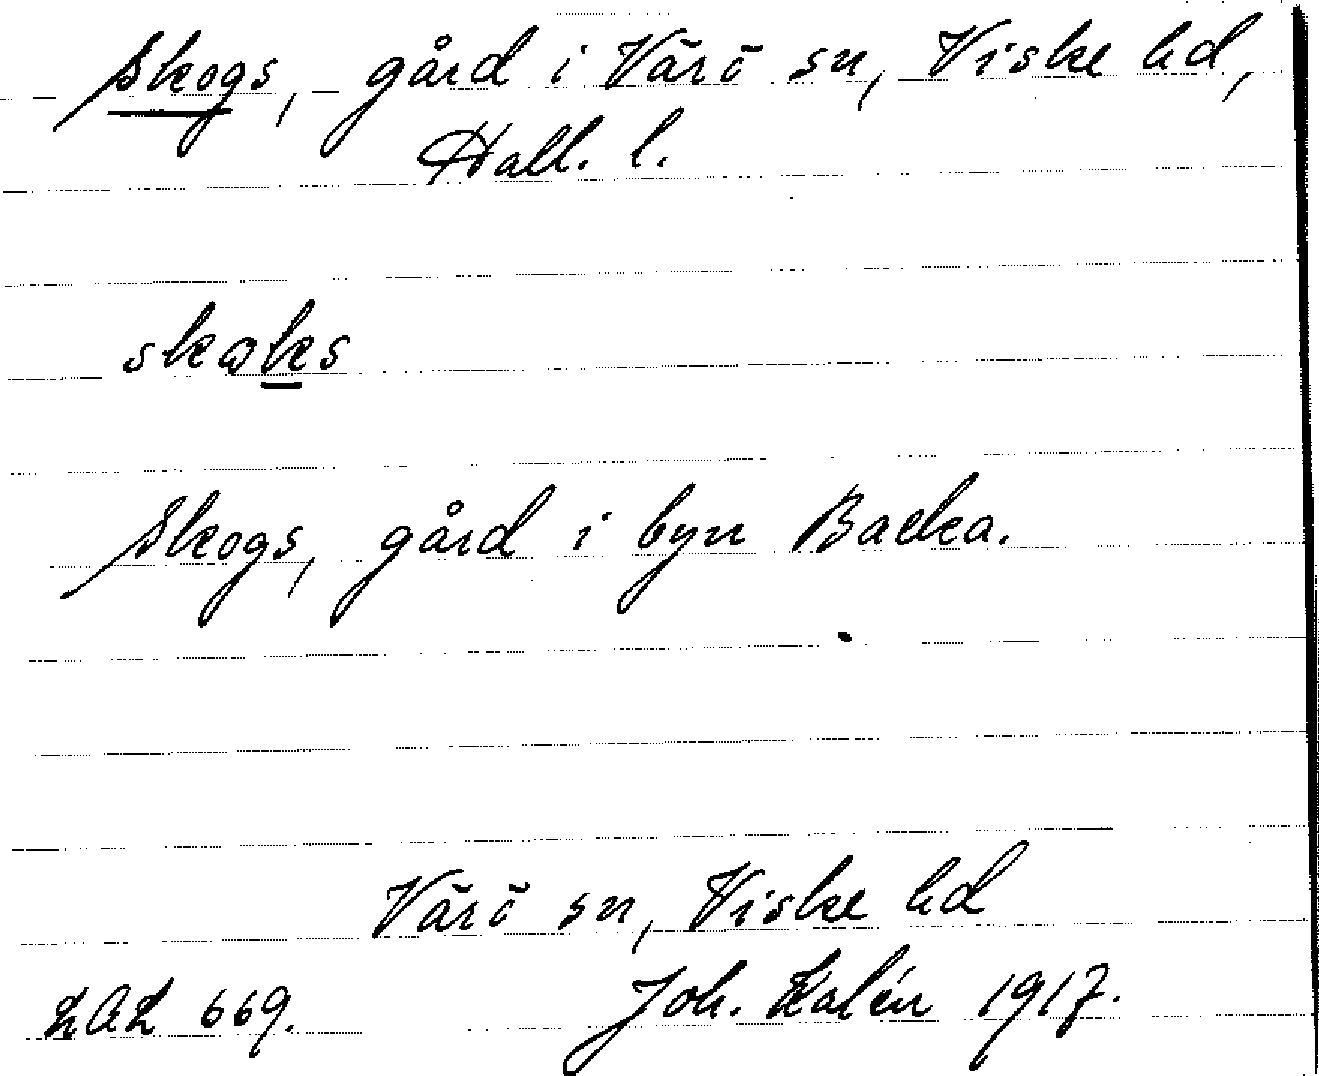 Skogs, gård i Värö sn, Viske hd,
Hall. l.
skoks
Skogs, gård i byn Backa.
Värö sn, Viske hd
LAL 669. Joh. Kalén 1917.